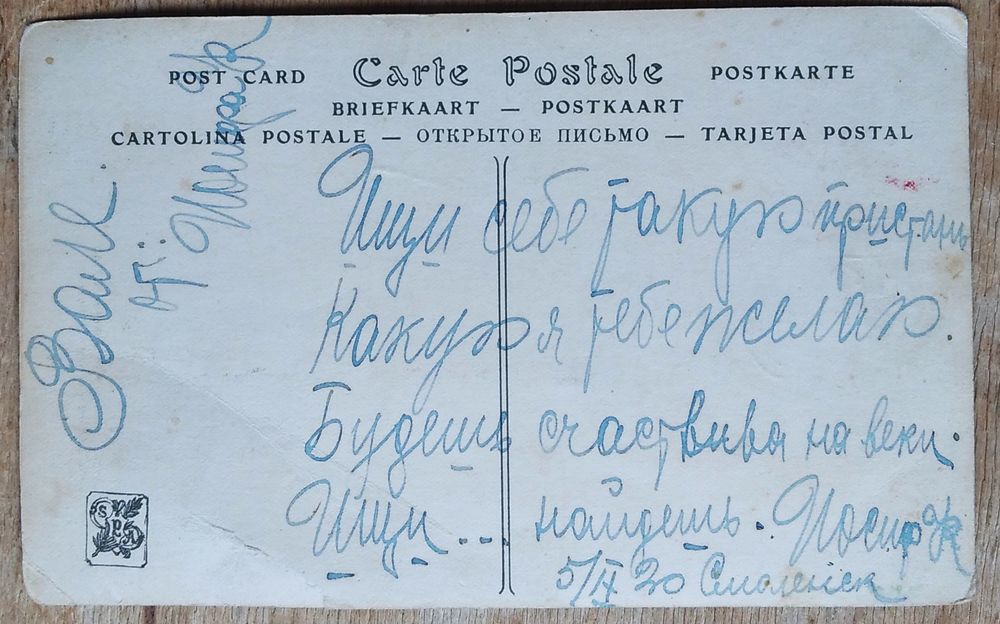 POST CARD Carte Postale POSTKARTE
BRIEFKAART — POSTKAART
CARTOLINA POSTALE — ОТКРЫТОЕ ПИСЬМО — TARJETA POSTAL
Вале.
от: Иосифа К
Ищи себе такую пристань
Какую я тебе желаю.
Будешь счастлива на веки.
Ищи... найдешь. Иосиф К
5/IX 20 Смоленск